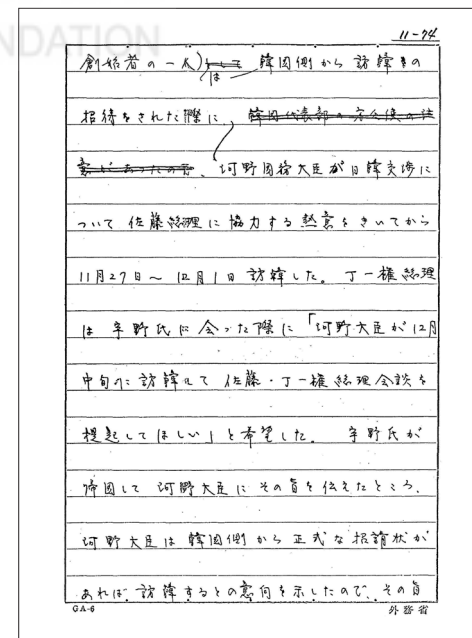 NDATION
11-74
創始者の一人)は 韓国側から訪韓の
招待をされた際に、
河野国務大臣が日韓交渉に
ついて佐藤総理に協力する熱意をきいてから
11月27日～12月1日訪韓した。丁一権総理
は宇野氏に会った際に「河野大臣が12月
中旬に訪韓して佐藤・丁一権総理会談を
提起してほしい」と希望した。宇野氏が
帰国して河野大臣にその旨を伝えたところ、
河野大臣は韓国側から正式な招請状が
あれば訪韓するとの意向を示したので、その旨
GA-6
外務省